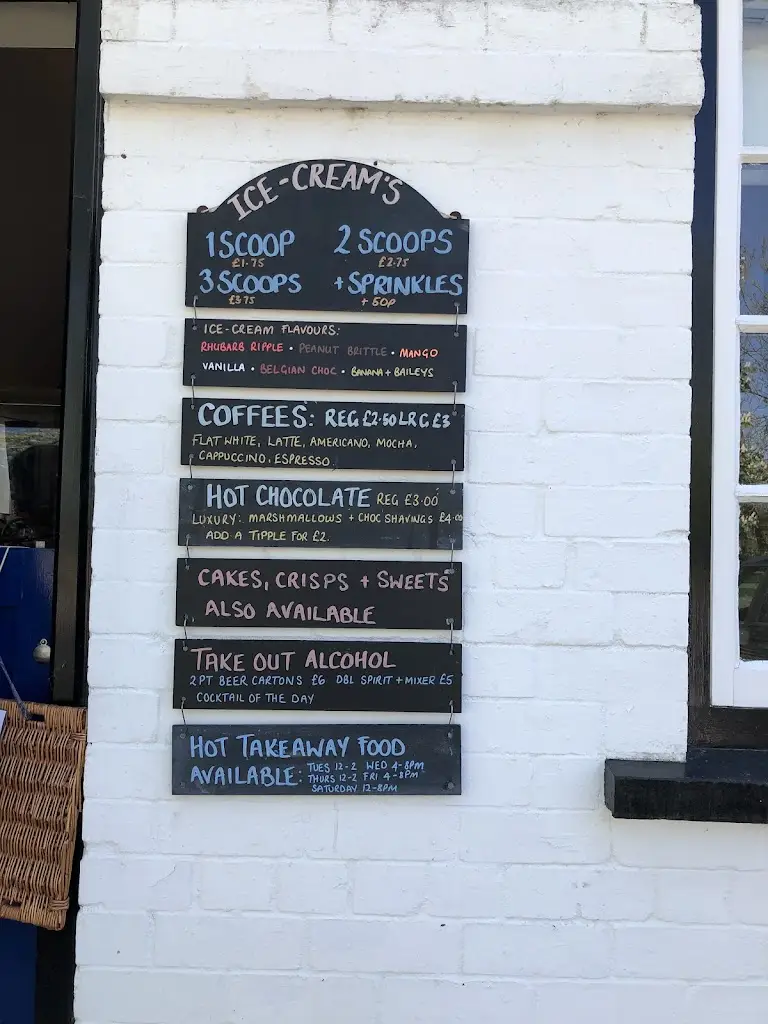 ICE-CREAM'S
1 SCOOP 2 SCOOPS
£1.75 £2.75
3 SCOOPS + SPRINKLES
£3.75 + 50P
ICE-CREAM FLAVOURS:
RHUBARB RIPPLE • PEANUT BRITTLE • MANGO
VANILLA • BELGIAN CHOC • BANANA + BAILEYS
COFFEES: REG £2.50 LRG £3
FLAT WHITE, LATTE, AMERICANO, MOCHA,
CAPPUCCINO, ESPRESSO
HOT CHOCOLATE REG £3.00
LUXURY: MARSHMALLOWS + CHOC SHAVINGS £4.00
ADD A TIPPLE FOR £2.
CAKES, CRISPS + SWEETS
ALSO AVAILABLE
TAKE OUT ALCOHOL
2PT BEER CARTONS £6 DBL SPIRIT + MIXER £5
COCKTAIL OF THE DAY
HOT TAKEAWAY FOOD
AVAILABLE: TUES 12-2 WED 4-8PM
THURS 12-2 FRI 4-8PM
SATURDAY 12-8PM